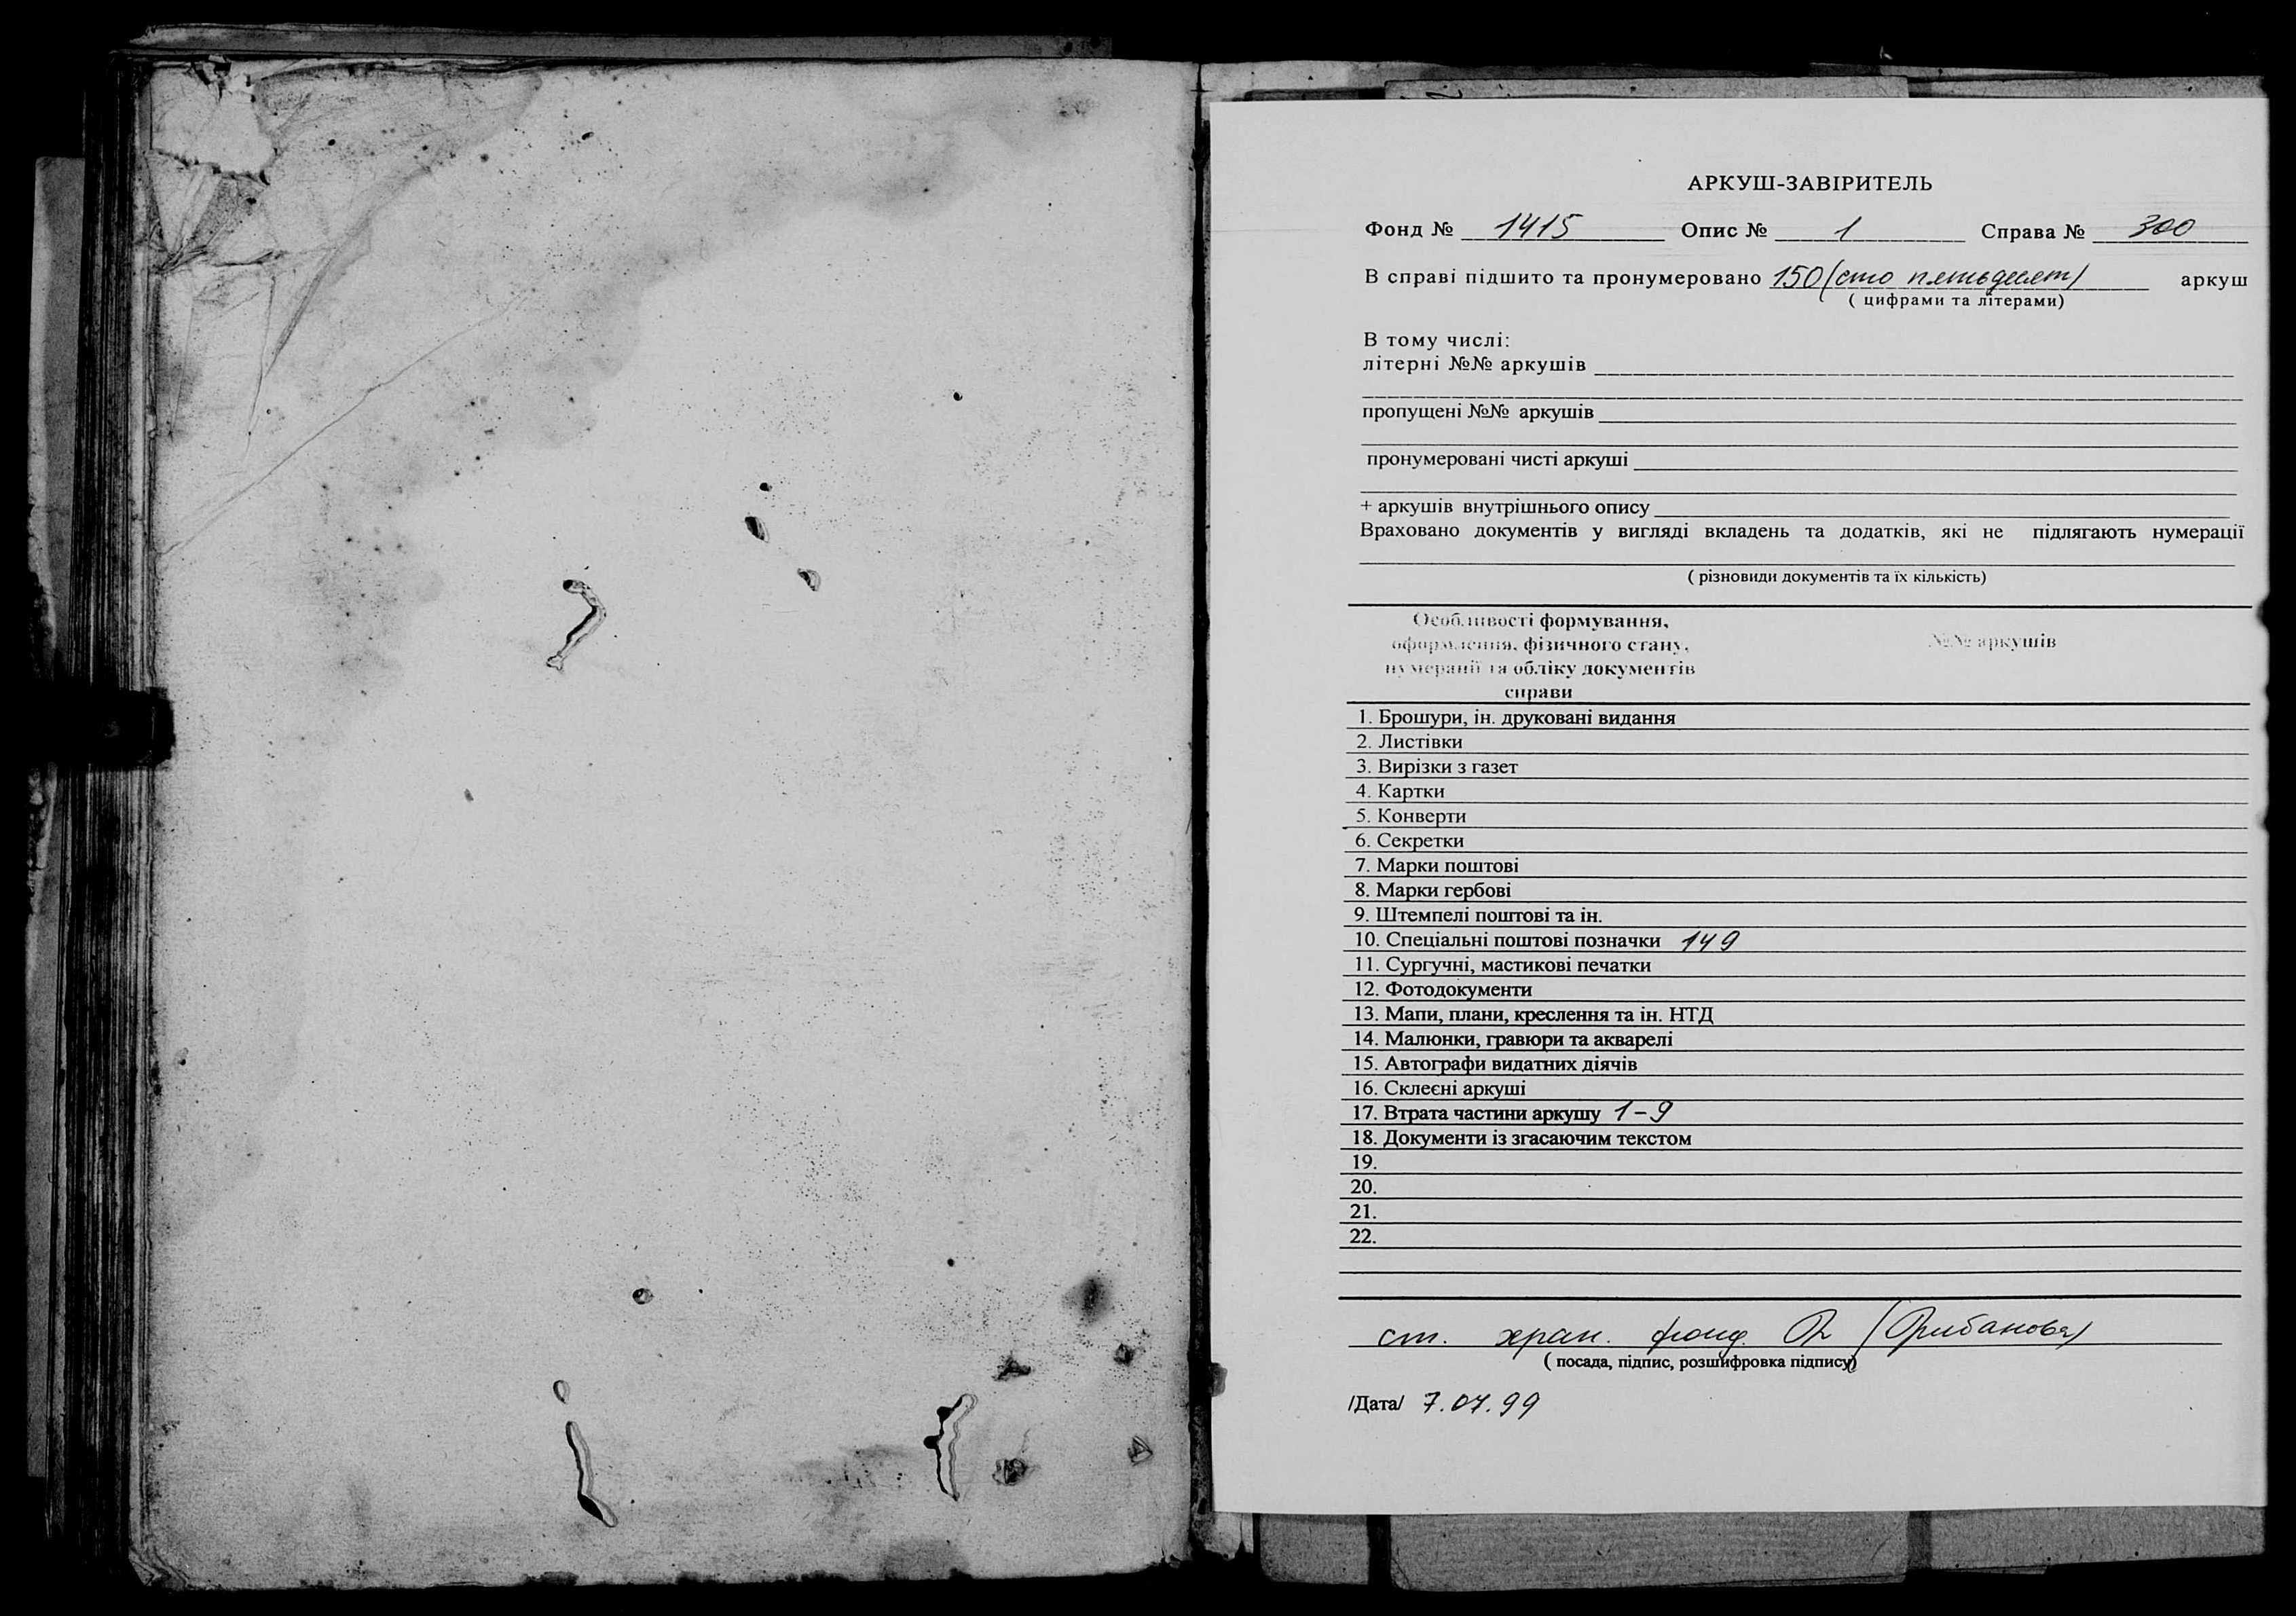 АРКУШ-ЗАВІРИТЕЛЬ
Фонд № 1415 Опис № 1 Справа № 300
В справі підшито та пронумеровано 150 (сто пятьдесят) аркуш
( цифрами та літерами)
В тому числі:
літерні №№ аркушів
пропущені №№ аркушів
пронумеровані чисті аркуші
+ аркушів внутрішнього опису
Враховано документів у вигляді вкладень та додатків, які не підлягають нумерації
( різновиди документів та їх кількість)
Особливості формування,
оформлення, фізичного стану,
нумерації та обліку документів
справи
№№ аркушів
1. Брошури, ін. друковані видання
2. Листівки
3. Вирізки з газет
4. Картки
5. Конверти
6. Секретки
7. Марки поштові
8. Марки гербові
9. Штемпелі поштові та ін.
10. Спеціальні поштові позначки 149
11. Сургучні, мастикові печатки
12. Фотодокументи
13. Мапи, плани, креслення та ін. НТД
14. Малюнки, гравюри та акварелі
15. Автографи видатних діячів
16. Склеєні аркуші
17. Втрата частини аркушу 1-9
18. Документи із згасаючим текстом
19.
20.
21.
22.
ст. хран. фонд.
( посада, підпис, розшифровка підпису)
/Дата/ 7.07.99